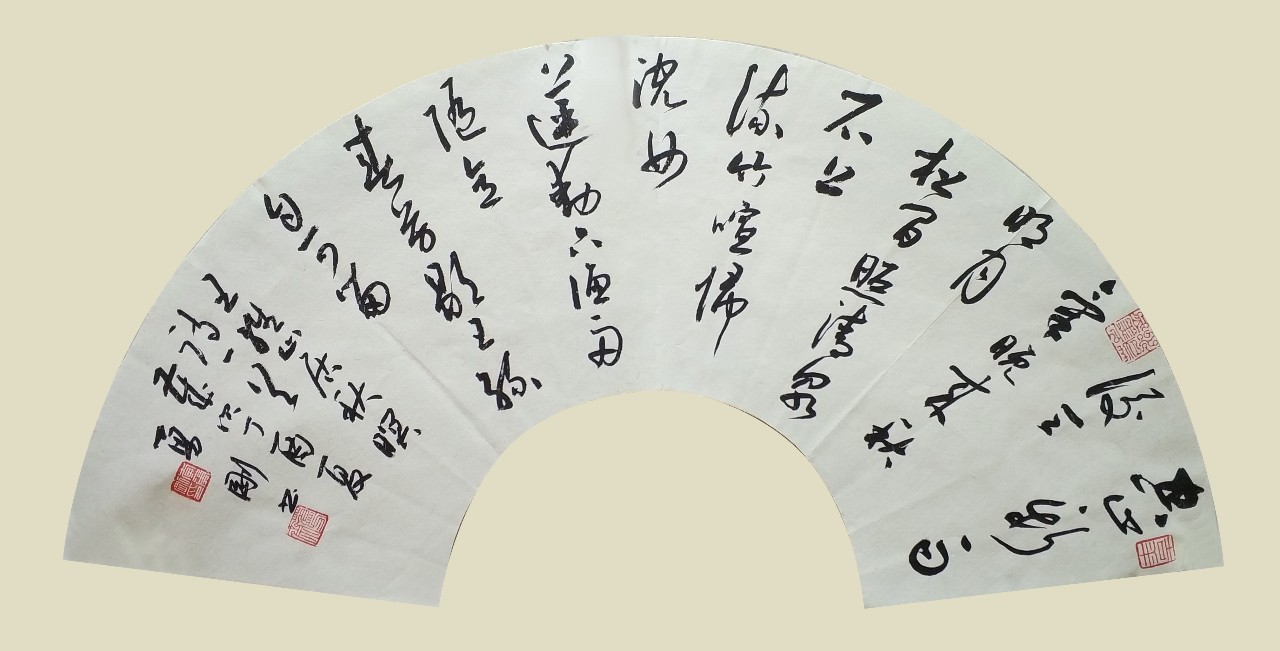 空山新雨
後天
氣晚来秋
明月
松間照清泉
石上
流竹喧帰
浣女
蓮動下漁舟
随意
春芳歇王孫
自可留
王維山居秋暝
詩一首丁酉夏
剛书